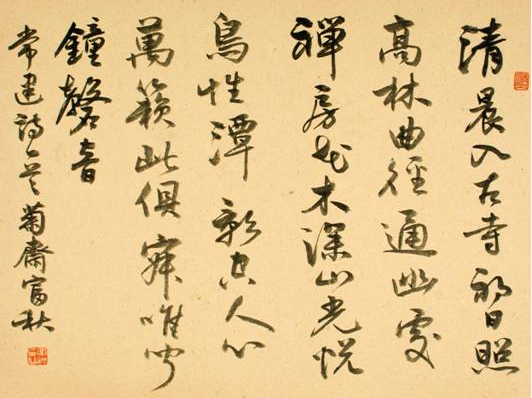 清晨入古寺初日照
高林曲徑通幽處
禪房花木深山光悅
鳥性潭影空人心
萬籟此俱寂唯聞
鐘磬音
常建詩 菊齋富秋